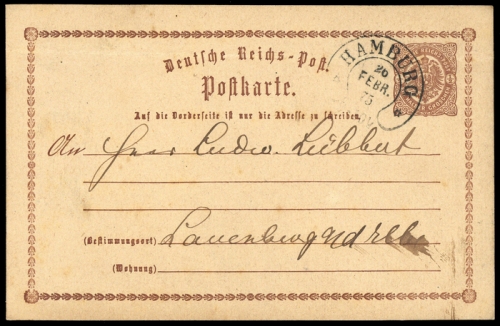 Deutsche Reichs-Post.
Postkarte.
HAMBURG
26
FEBR.
75
Auf die Vorderseite ist nur die Adresse zu schreiben.
An Herr Ludw. Lübbert
(Bestimmungsort) Lauenburg a/d Elbe
(Wohnung)